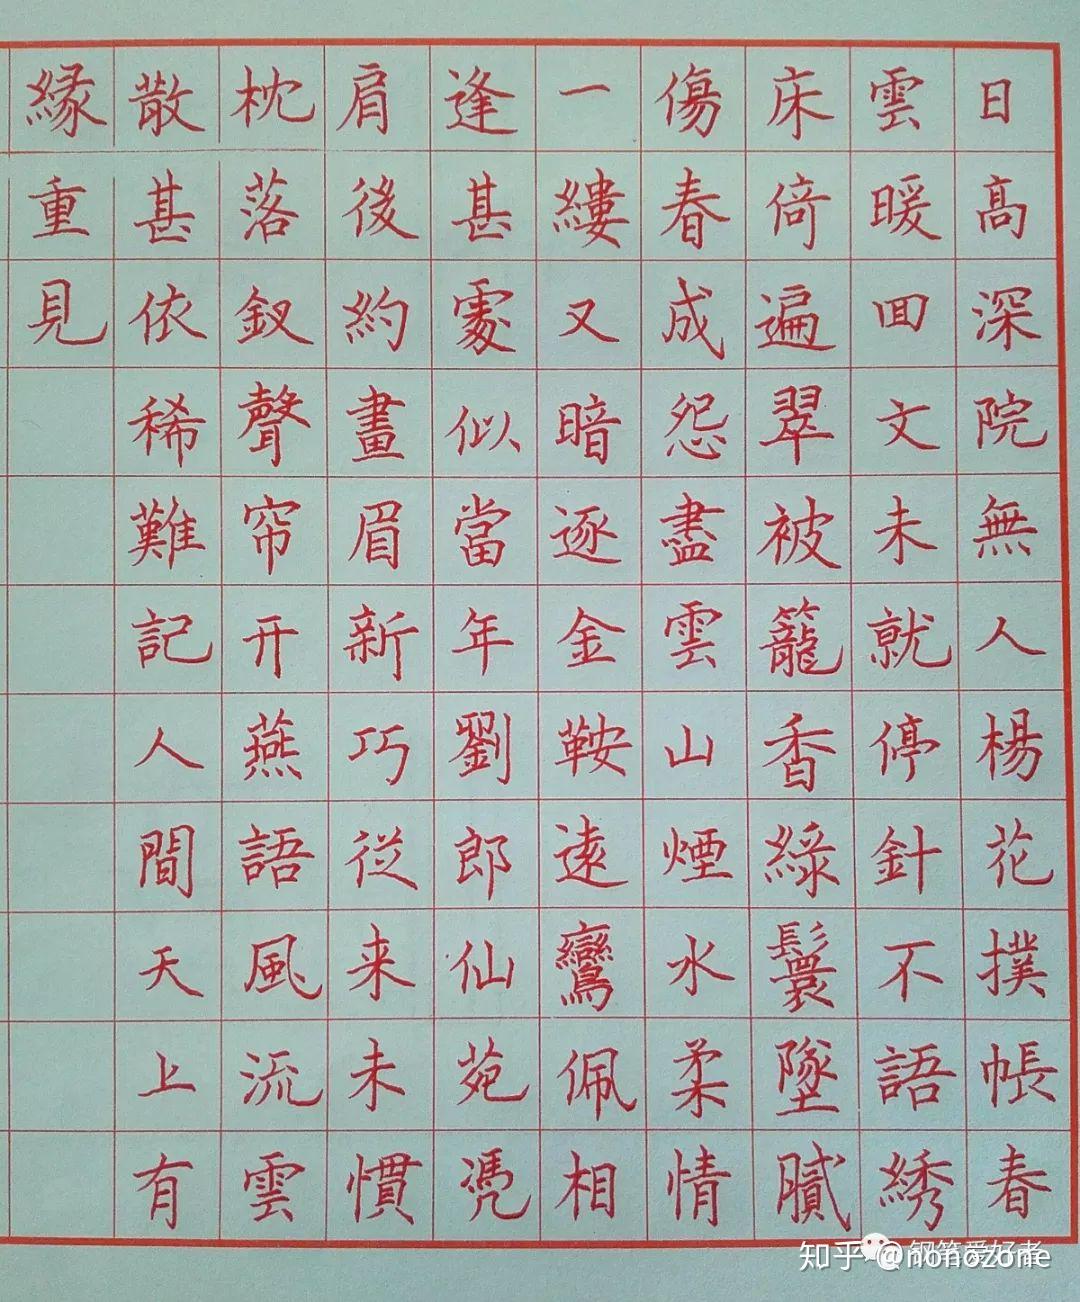 日高深院無人楊花撲帳春
雲暖回文未就停針不語綉
床倚遍翠被籠香綠鬟墜膩
傷春成怨盡雲山煙水柔情
一縷又暗逐金鞍遠鸞佩相
逢甚處似當年劉郎仙苑憑
肩後約畫眉新巧從来未慣
枕落釵聲帘开燕語風流雲
散甚依稀難記人間天上有
緣重見
知乎 @nonozone
钢笔爱好者